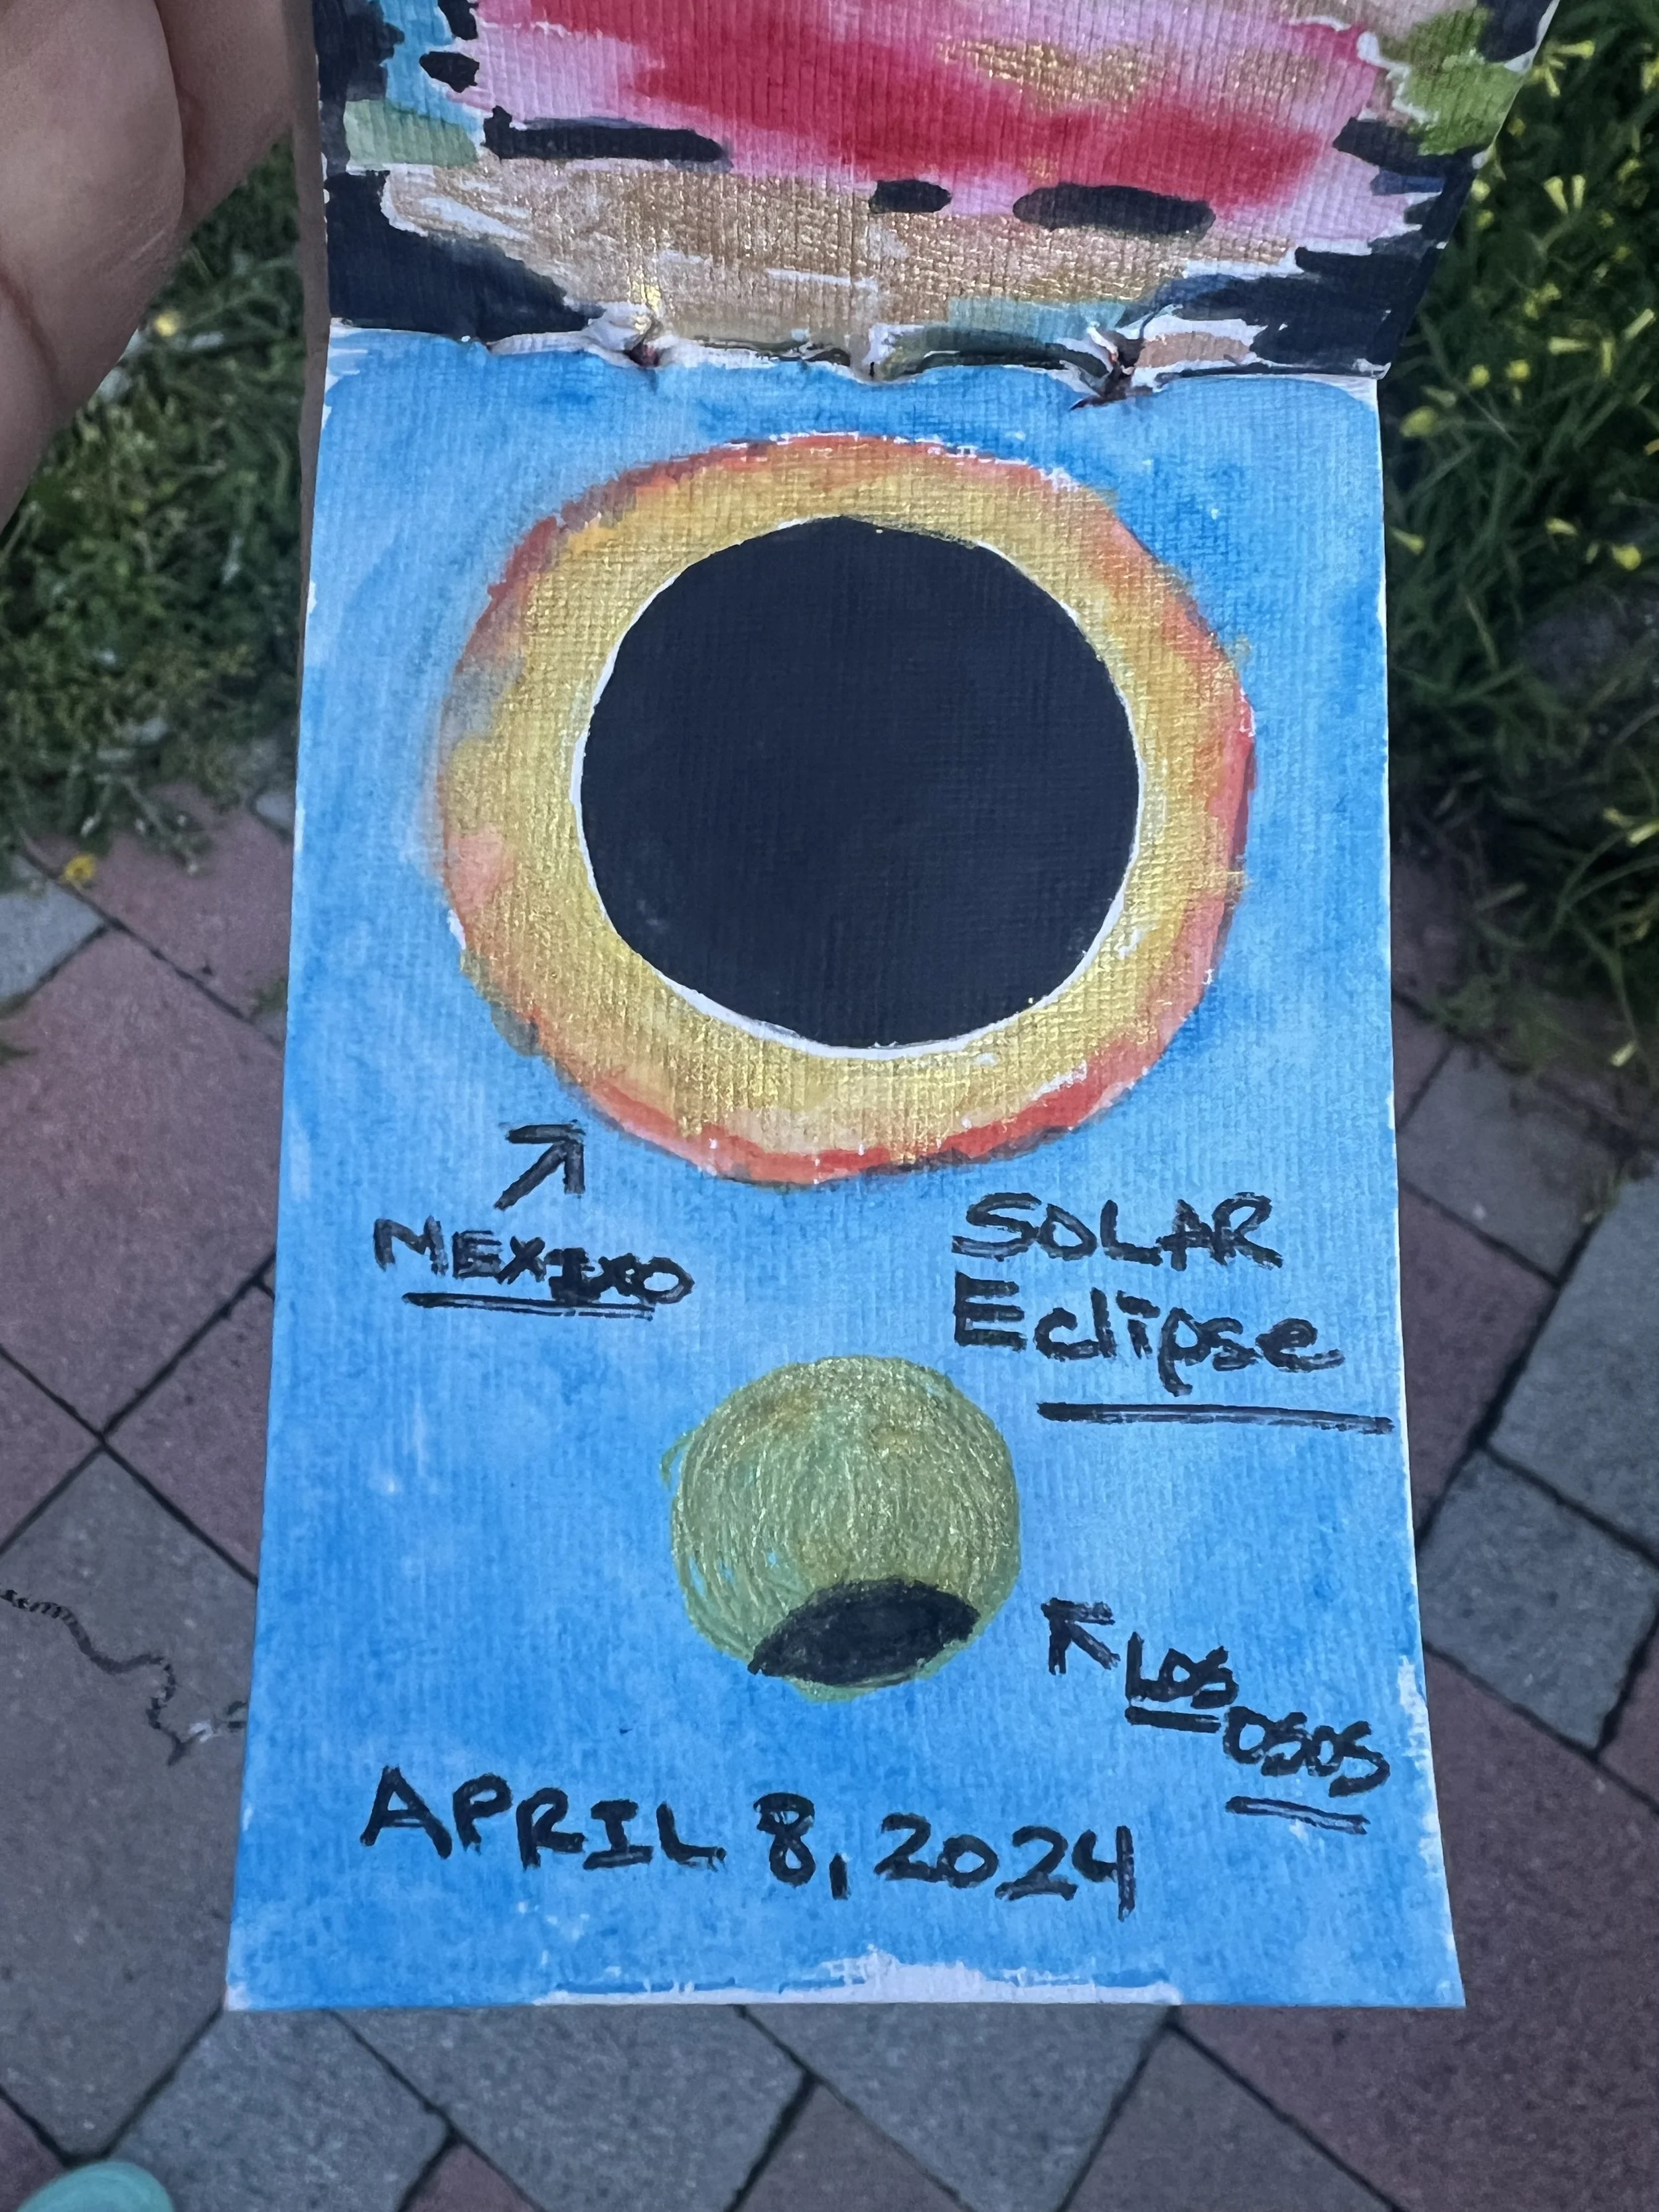 MEXIXO
SOLAR
Eclipse
LOS
OSOS
APRIL 8, 2024